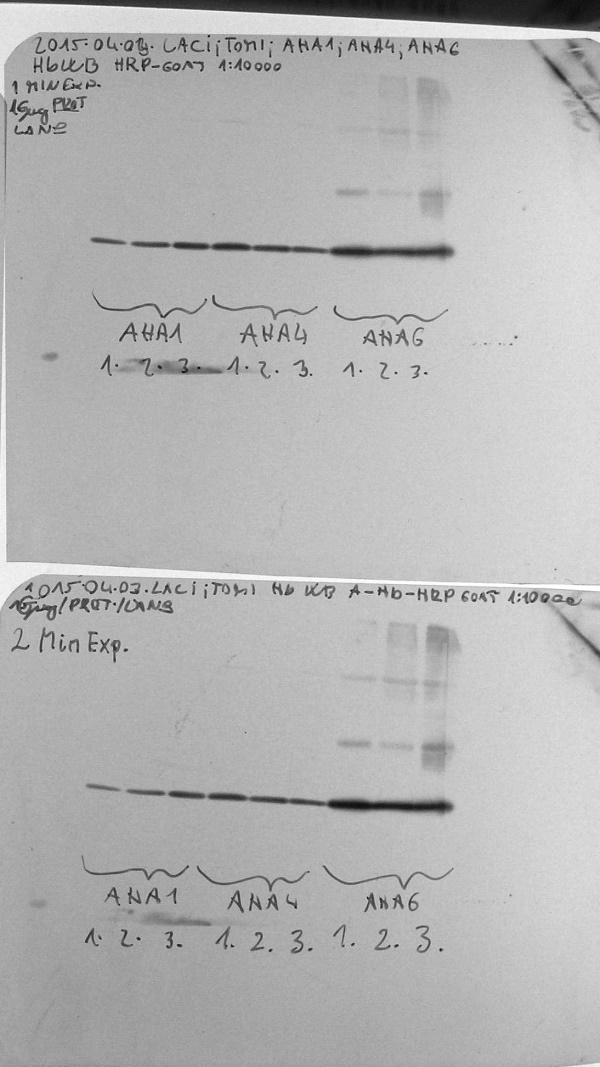 2015.04.03. LACI; TOMI; AHA1; AHA4; AHA6
Hb WB HRP-GOAT 1:10000
1 MIN EXP.
15µg PROT
LANE
AHA1 AHA4 AHA6
1. 2. 3. 1. 2. 3. 1. 2. 3.
2015.04.03. LACI; TOMI Hb WB A-Hb-HRP GOAT 1:10000
15µg/PROT./LANE
2 Min Exp.
AHA1 AHA4 AHA6
1. 2. 3. 1. 2. 3. 1. 2. 3.